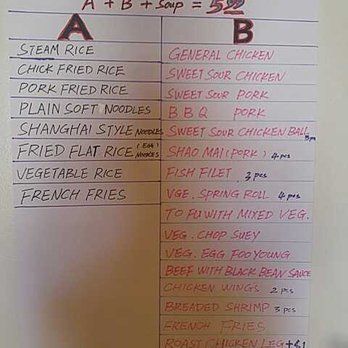 A + B + Soup = 5
A
B
STEAM RICE
CHICK FRIED RICE
PORK FRIED RICE
PLAIN SOFT NOODLES
SHANGHAI STYLE NOODLES
FRIED FLAT RICE (EGG) NOODLES
VEGETABLE RICE
FRENCH FRIES
GENERAL CHICKEN
SWEET SOUR CHICKEN
SWEET SOUR PORK
B B Q PORK
SWEET SOUR CHICKEN BALL
SHAO MAI (PORK) 4 pcs
FISH FILET 3 pcs
VGE. SPRING ROLL 4 pcs
TO FU WITH MIXED VEG.
VEG. CHOP SUEY
VEG. EGG FOO YOUNG
BEEF WITH BLACK BEAN SAUCE
CHICKEN WINGS 2 pcs
BREADED SHRIMP 3 pcs
FRENCH FRIES
ROAST CHICKEN LEG +$1